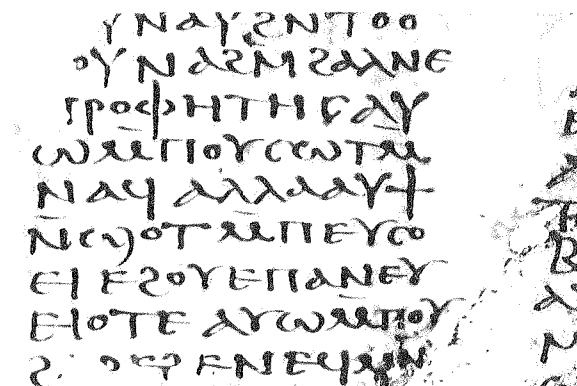 ⲩⲛⲁⲩϩⲛⲧⲟⲟ
ⲟⲩⲛⲁϩⲙϩⲁⲗⲛⲉ
ⲡⲣⲟⲫⲏⲧⲏⲥⲁⲩ
ⲱⲙ̅ⲡⲟⲩⲥⲱⲧⲙ̅
ⲛⲁϥⲁⲗⲗⲁⲁⲩϯ
ⲛ̅ϣⲟⲧⲙ̅ⲡⲉⲩⲥⲟ
ⲉⲓⲉϩⲟⲩⲉⲡⲁⲛⲉⲩ
ⲉⲓⲟⲧⲉⲁⲩⲱⲙ̅ⲡⲟⲩ
ⲉⲛⲉϥⲙⲛ